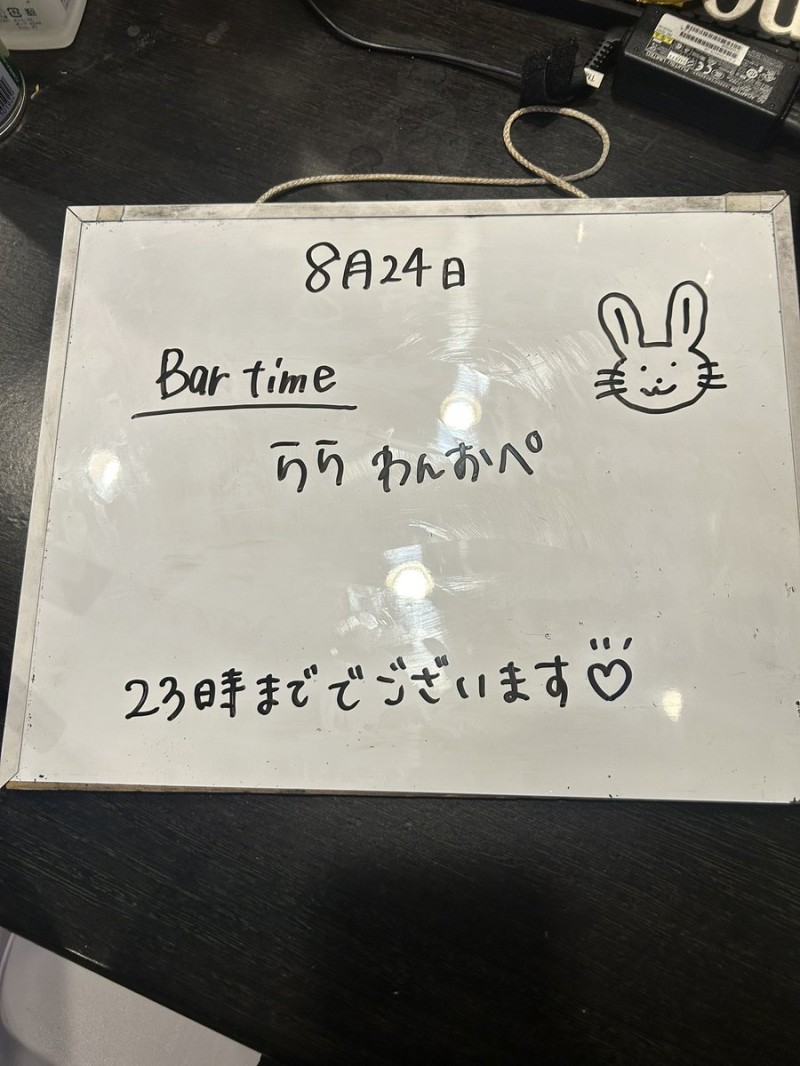 8月24日
Bar time
らら わんおペ
23時まででございます♡